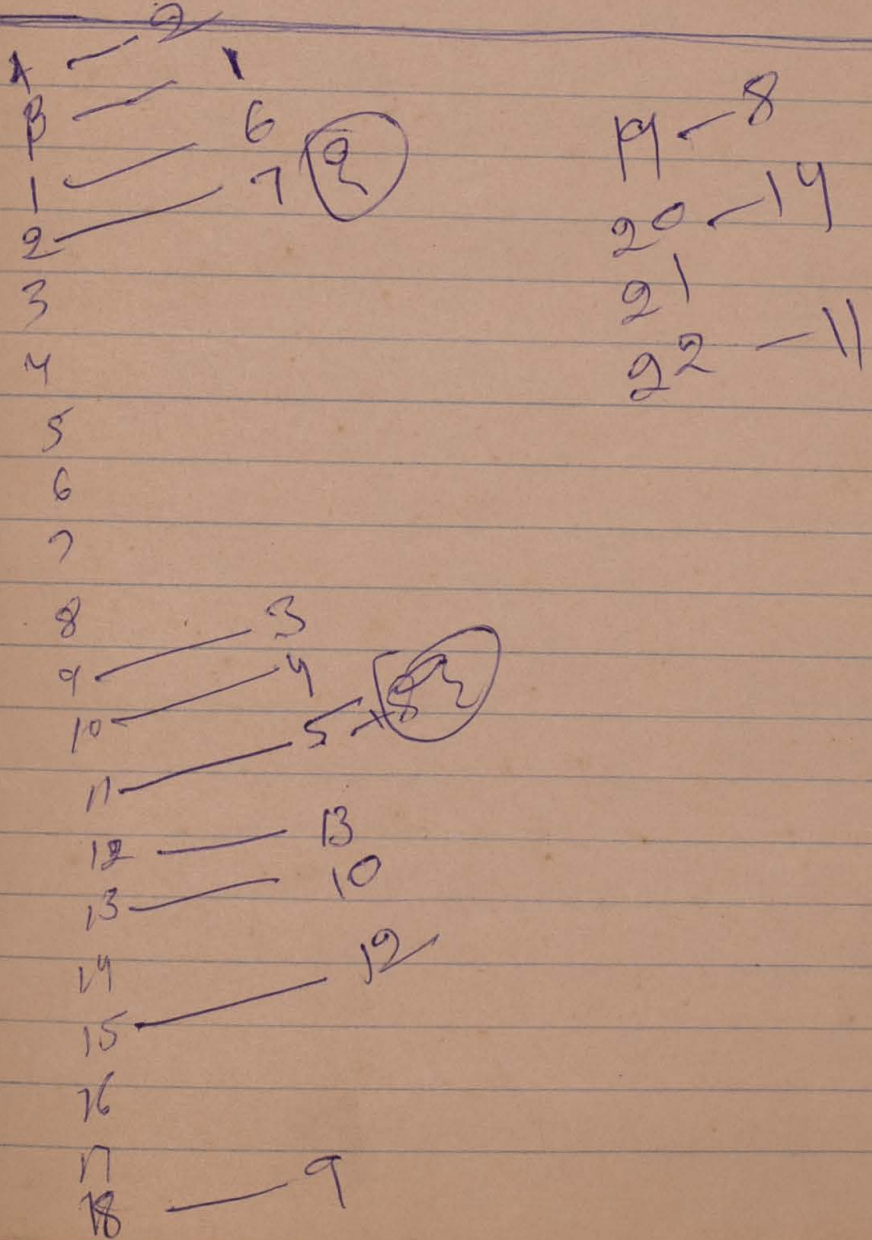 A - 2
B - 1
1 - 6
2 - 7 2
3
4
5
6
7
8
9 - 3
10 - 4
11 - 5
12 - 13
13 - 10
14
15 - 12
16
17
18 - 9
19 - 8
20 - 14
21
22 - 11